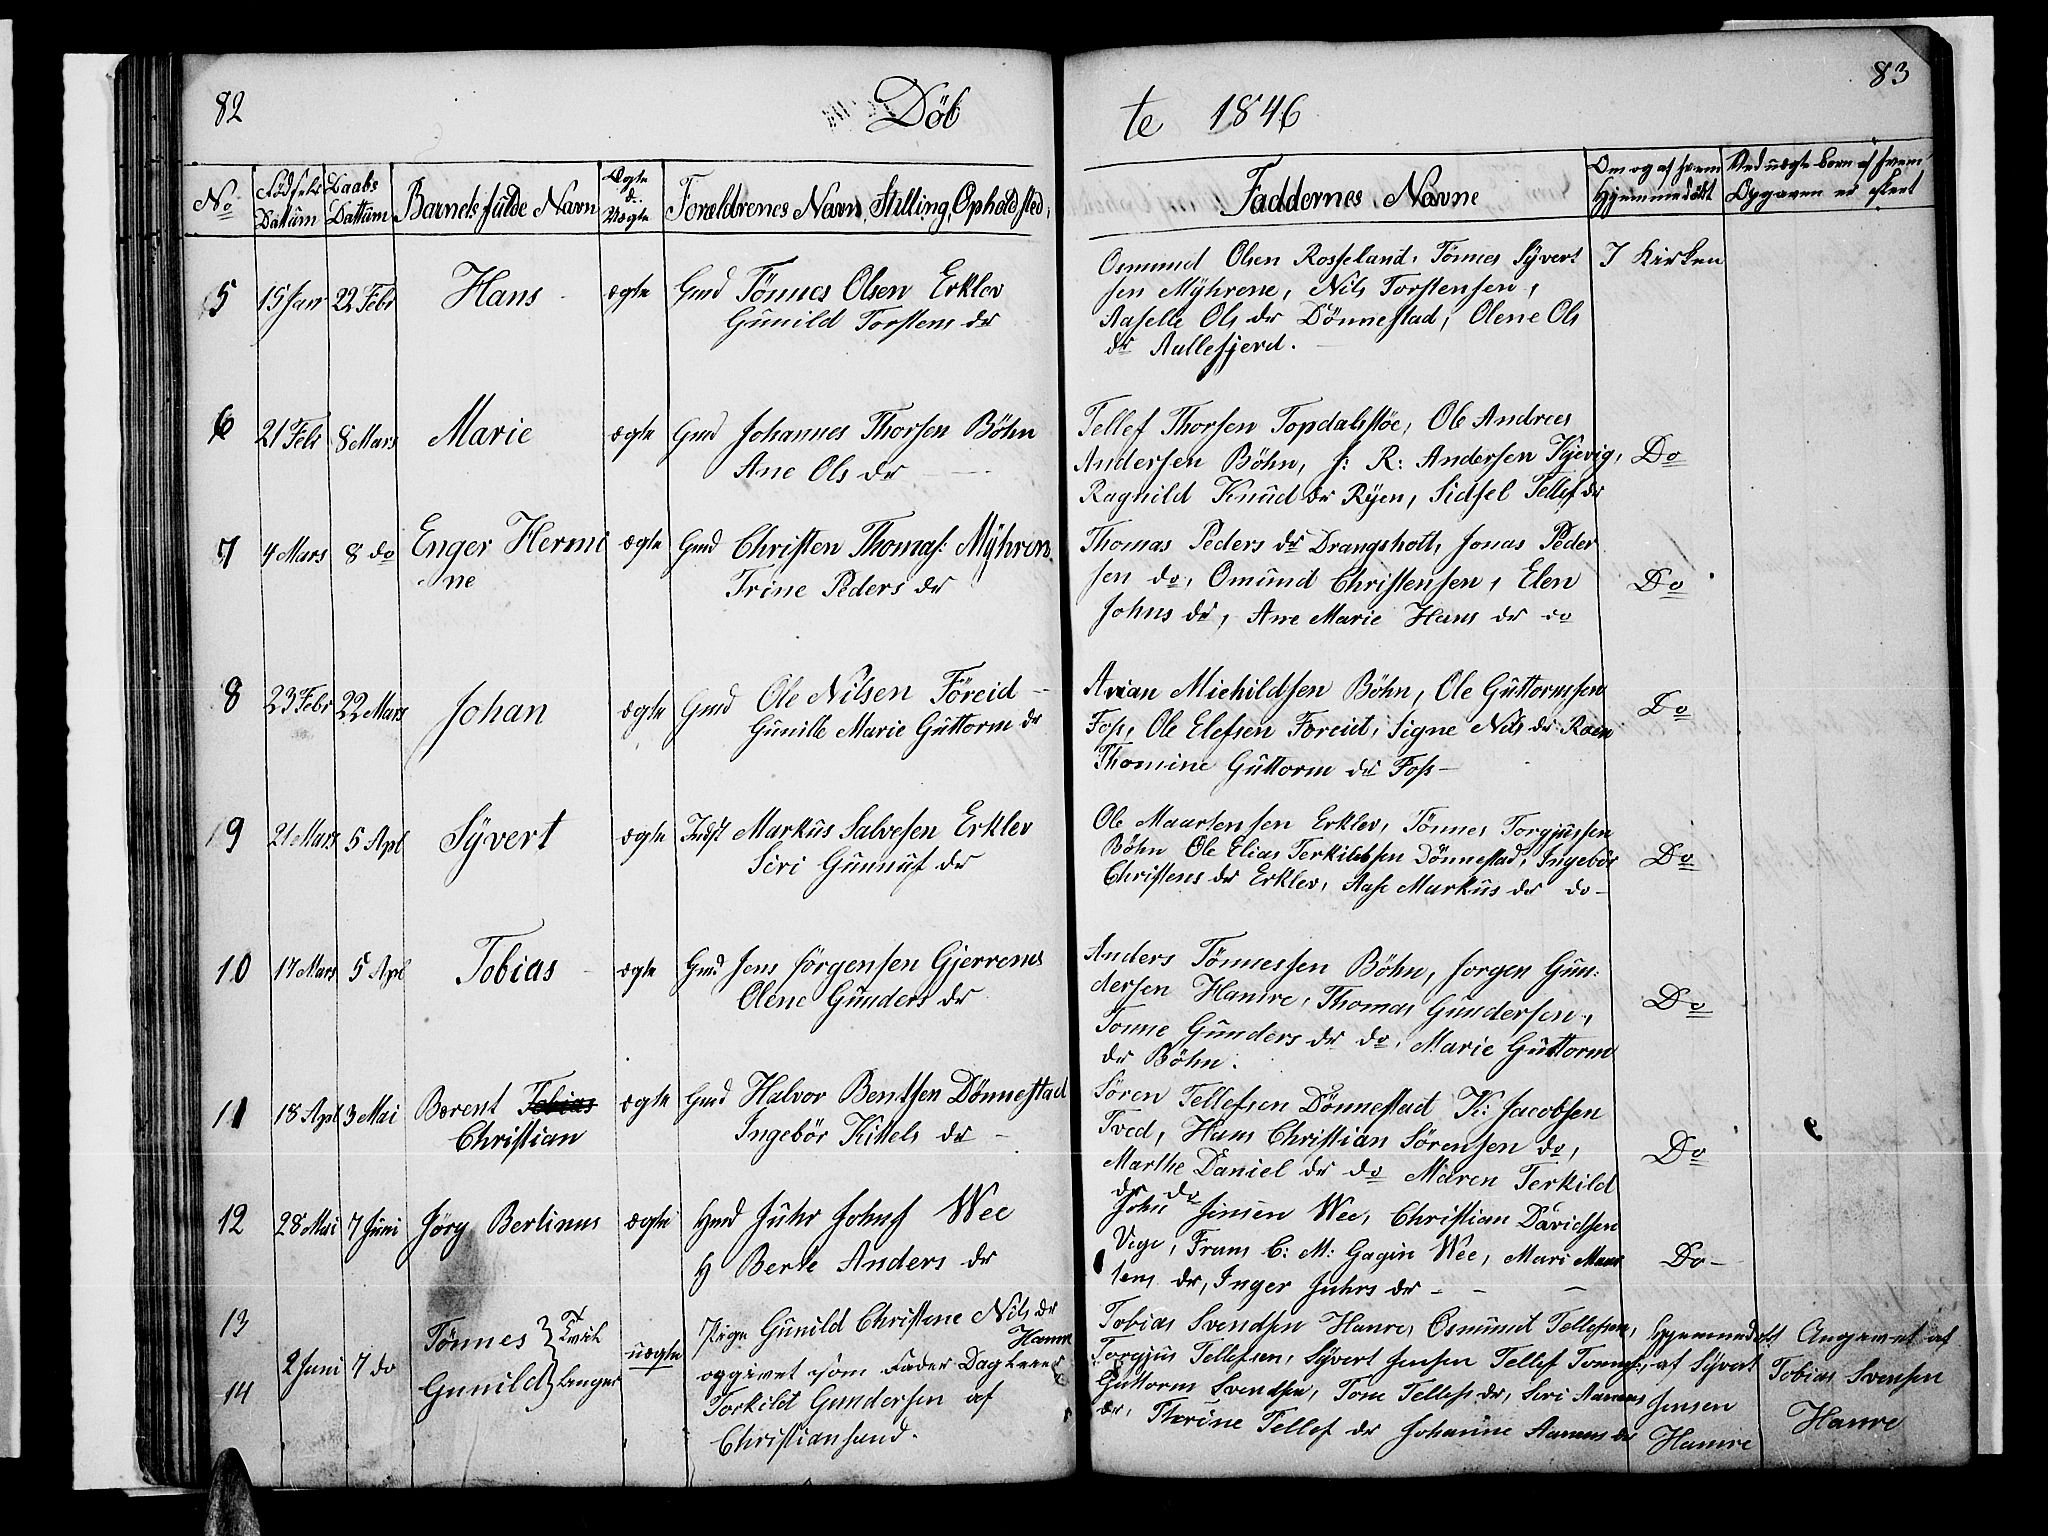 82
Döb
te 1846
83
No
Födsels Dattum
Daabs Dattum
Barnets fulde Navn
Ægte d: Uægte
Forældrenes Navn, Stilling, Opholdsted,
Faddernes Navne
Om og af hvem Hjemmedöbt
Ved uægte born af hvem Opgaven er skeet
5 15 Jan 22 Febr Hans ægte Gmd Tönnes Olsen Erklev
Gunild Torstens dr
Osmund Olsen Rosseland, Tönnes Syvert
sen Myhrene, Nils Torstensen,
Aaselle Ols dr Dönnestad, Olene Ols
dr Aallefjerd.
I Kirken
6 21 Feb 8 Mars Marie ægte Gmd Johannes Thorsen Böhn
Ane Ols dr
Tellef Thorsen Topdalsstöe, Ole Andreas
Andersen Böhn, J: R: Andersen Kjevig,
Ragnild Knud dr Ryen, Sidsel Tellef dr
Do
7 4 Mars 8 do Enger Hermi
ne
ægte Gmd Christen Thomas: Myhren
Trine Peders dr
Thomas Peders dr Drangsholt, Jonas Peder
sen do, Omund Christensen, Elen
Johns dr, Ane Marie Hans dr do
Do
8 23 Febr 22 Mars Johan ægte Gmd Ole Nilsen Föreid
Gunille Marie Guttorm dr
Arian Michildsen Böhn, Ole Guttormssen
Foss, Ole Elefsen Foreid, Signe Nils dr Roen
Thomine Guttorm dr Foss
Do
9 21 Mars 5 Apl Syvert ægte Indst Markus Salvesen Erklev
Siri Gunnuf dr
Ole Maartensen Erklev, Tönnes Torgjussen
Böhn Ole Elias Terkildsen Dönnestad, Ingebör
Christens dr Erklev, Aase Markus dr do
Do
10 17 Mars 5 Apl Tobias ægte Gmd Jens Jörgensen Gjerrenes
Olene Gunders dr
Anders Tönnessen Böhn, Jorgen Gun:
dersen Hamre, Thomas Gundersen,
Tonne Gunders dr do, Marie Guttorm
dr Böhn.
Do
11 18 Apl 3 Mai Berent Tobias
Christian
ægte Gmd Halvor Bentsen Dönnestad
Ingebör Kittels dr
Sören Tellefsen Dönnestad K: Jacobsen
Tved, Hans Christian Sörensen do,
Marthe Daniel dr do Maren Terkild
dr do
Do
12 28 Mai 7 Juni Jörg Berlinus ægte Hmd Juhr Johns Wee
H Berte Anders dr
John Jensen Wee, Christian Davidsen
Vige, Frans C: M: Gagin Wee, Mari Maar
tens dr, Inger Juhrs dr
Do
13
14
2 Juni 7 do Tönnes
Gunild
uægte
Pige Gunild Christene Nils dr
Hamre
opgivet som Fader Dagleier
Torkild Gundersen af
Christiansand.
Tobias Svendsen Hamre, Osmund Tellefsen,
Torgjus Tellefsen, Syvert Jensen Tellef Tönnes:
Guttorm Svendsen, Tone Tellefs dr, Siri Aanens
dr, Therine Tellef dr Johanne Aanens dr
Hjemmedöbt
af Syvert
Jensen
Hamre
Angivet af
Tobias Svensen
Hamre